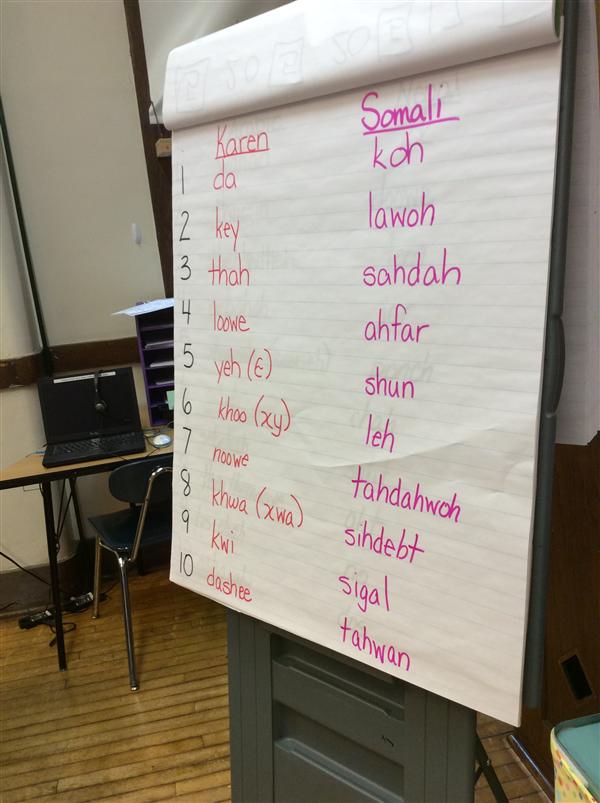 Karen Somali
1 da koh
2 key lawoh
3 thah sahdah
4 loowe ahfar
5 yeh (ε) shun
6 khoo (xy) leh
7 noowe tahdahwoh
8 khwa (xwa) sihdebt
9 kwi sigal
10 dashee tahwan